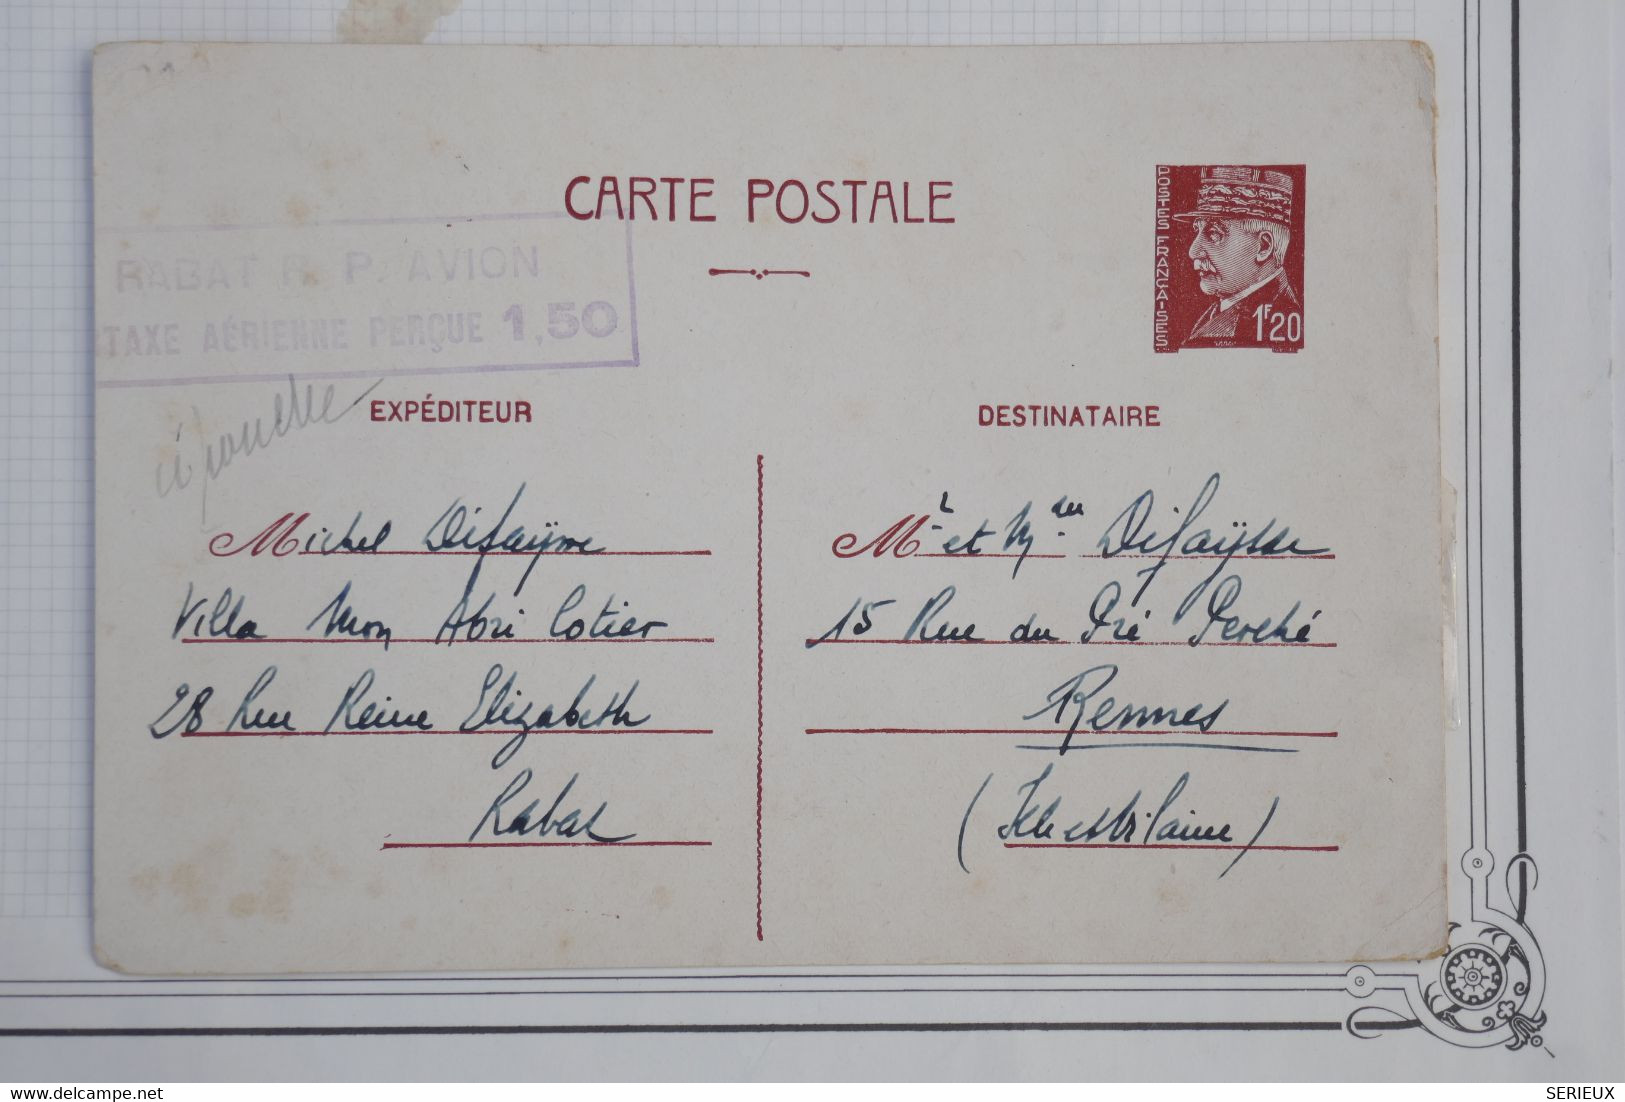 CARTE POSTALE
POSTES FRANÇAISES
1F20
RABAT R. P. AVION
TAXE AÉRIENNE PERÇUE 1,50
EXPÉDITEUR
Michel
Villa Mon Abri Cotier
28 Rue Reine Elizabeth
Rabat
DESTINATAIRE
Mr et Mme
15 Rue du Pré Perché
Rennes
(Ille et Vilaine)
SERIEUX